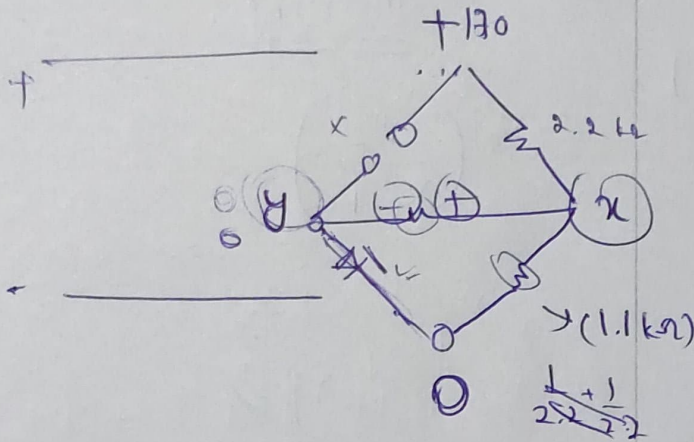 +170
+
x
2.2 kΩ
y
- +
x
(1.1 kΩ)
0
1/2.2 + 1/2.2